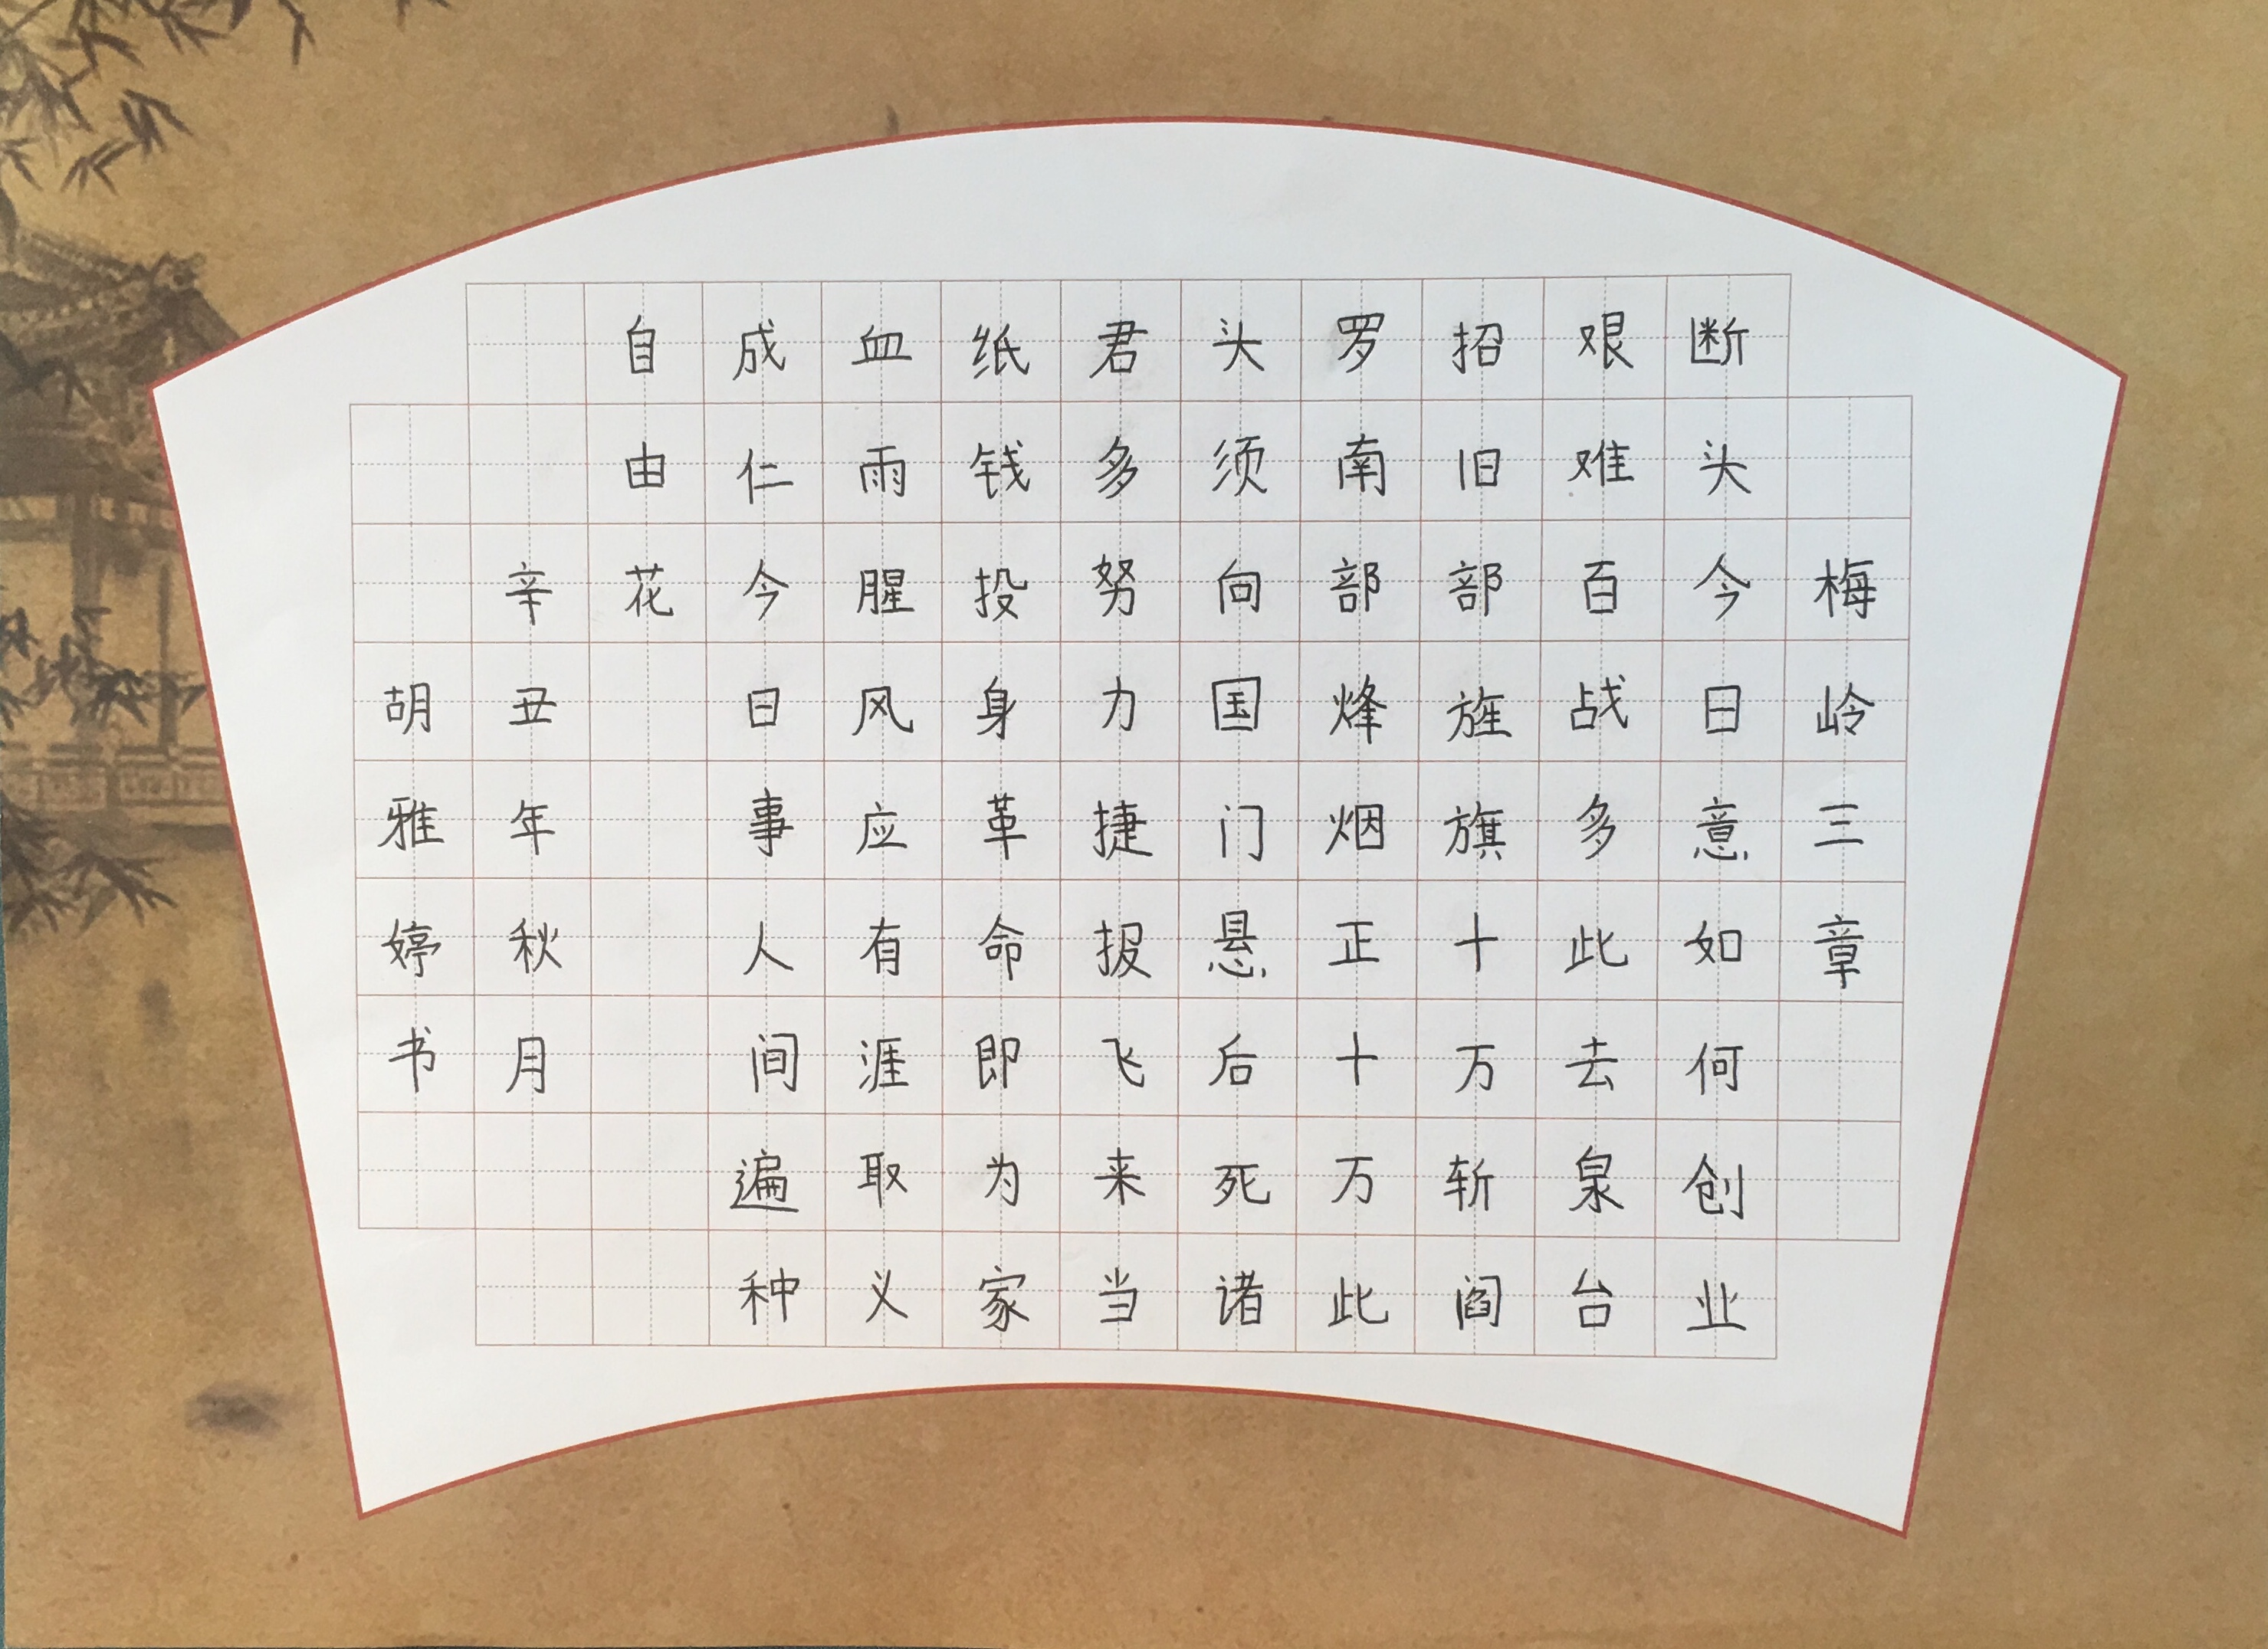 梅岭三章
断头今日意如何创业
艰难百战多此去泉台
招旧部旌旗十万斩阎
罗南部烽烟正十万此
头须向国门悬后死诸
君多努力捷报飞来当
纸钱投身革命即为家
血雨腥风应有涯取义
成仁今日事人间遍种
自由花
辛丑年秋月
胡雅婷书